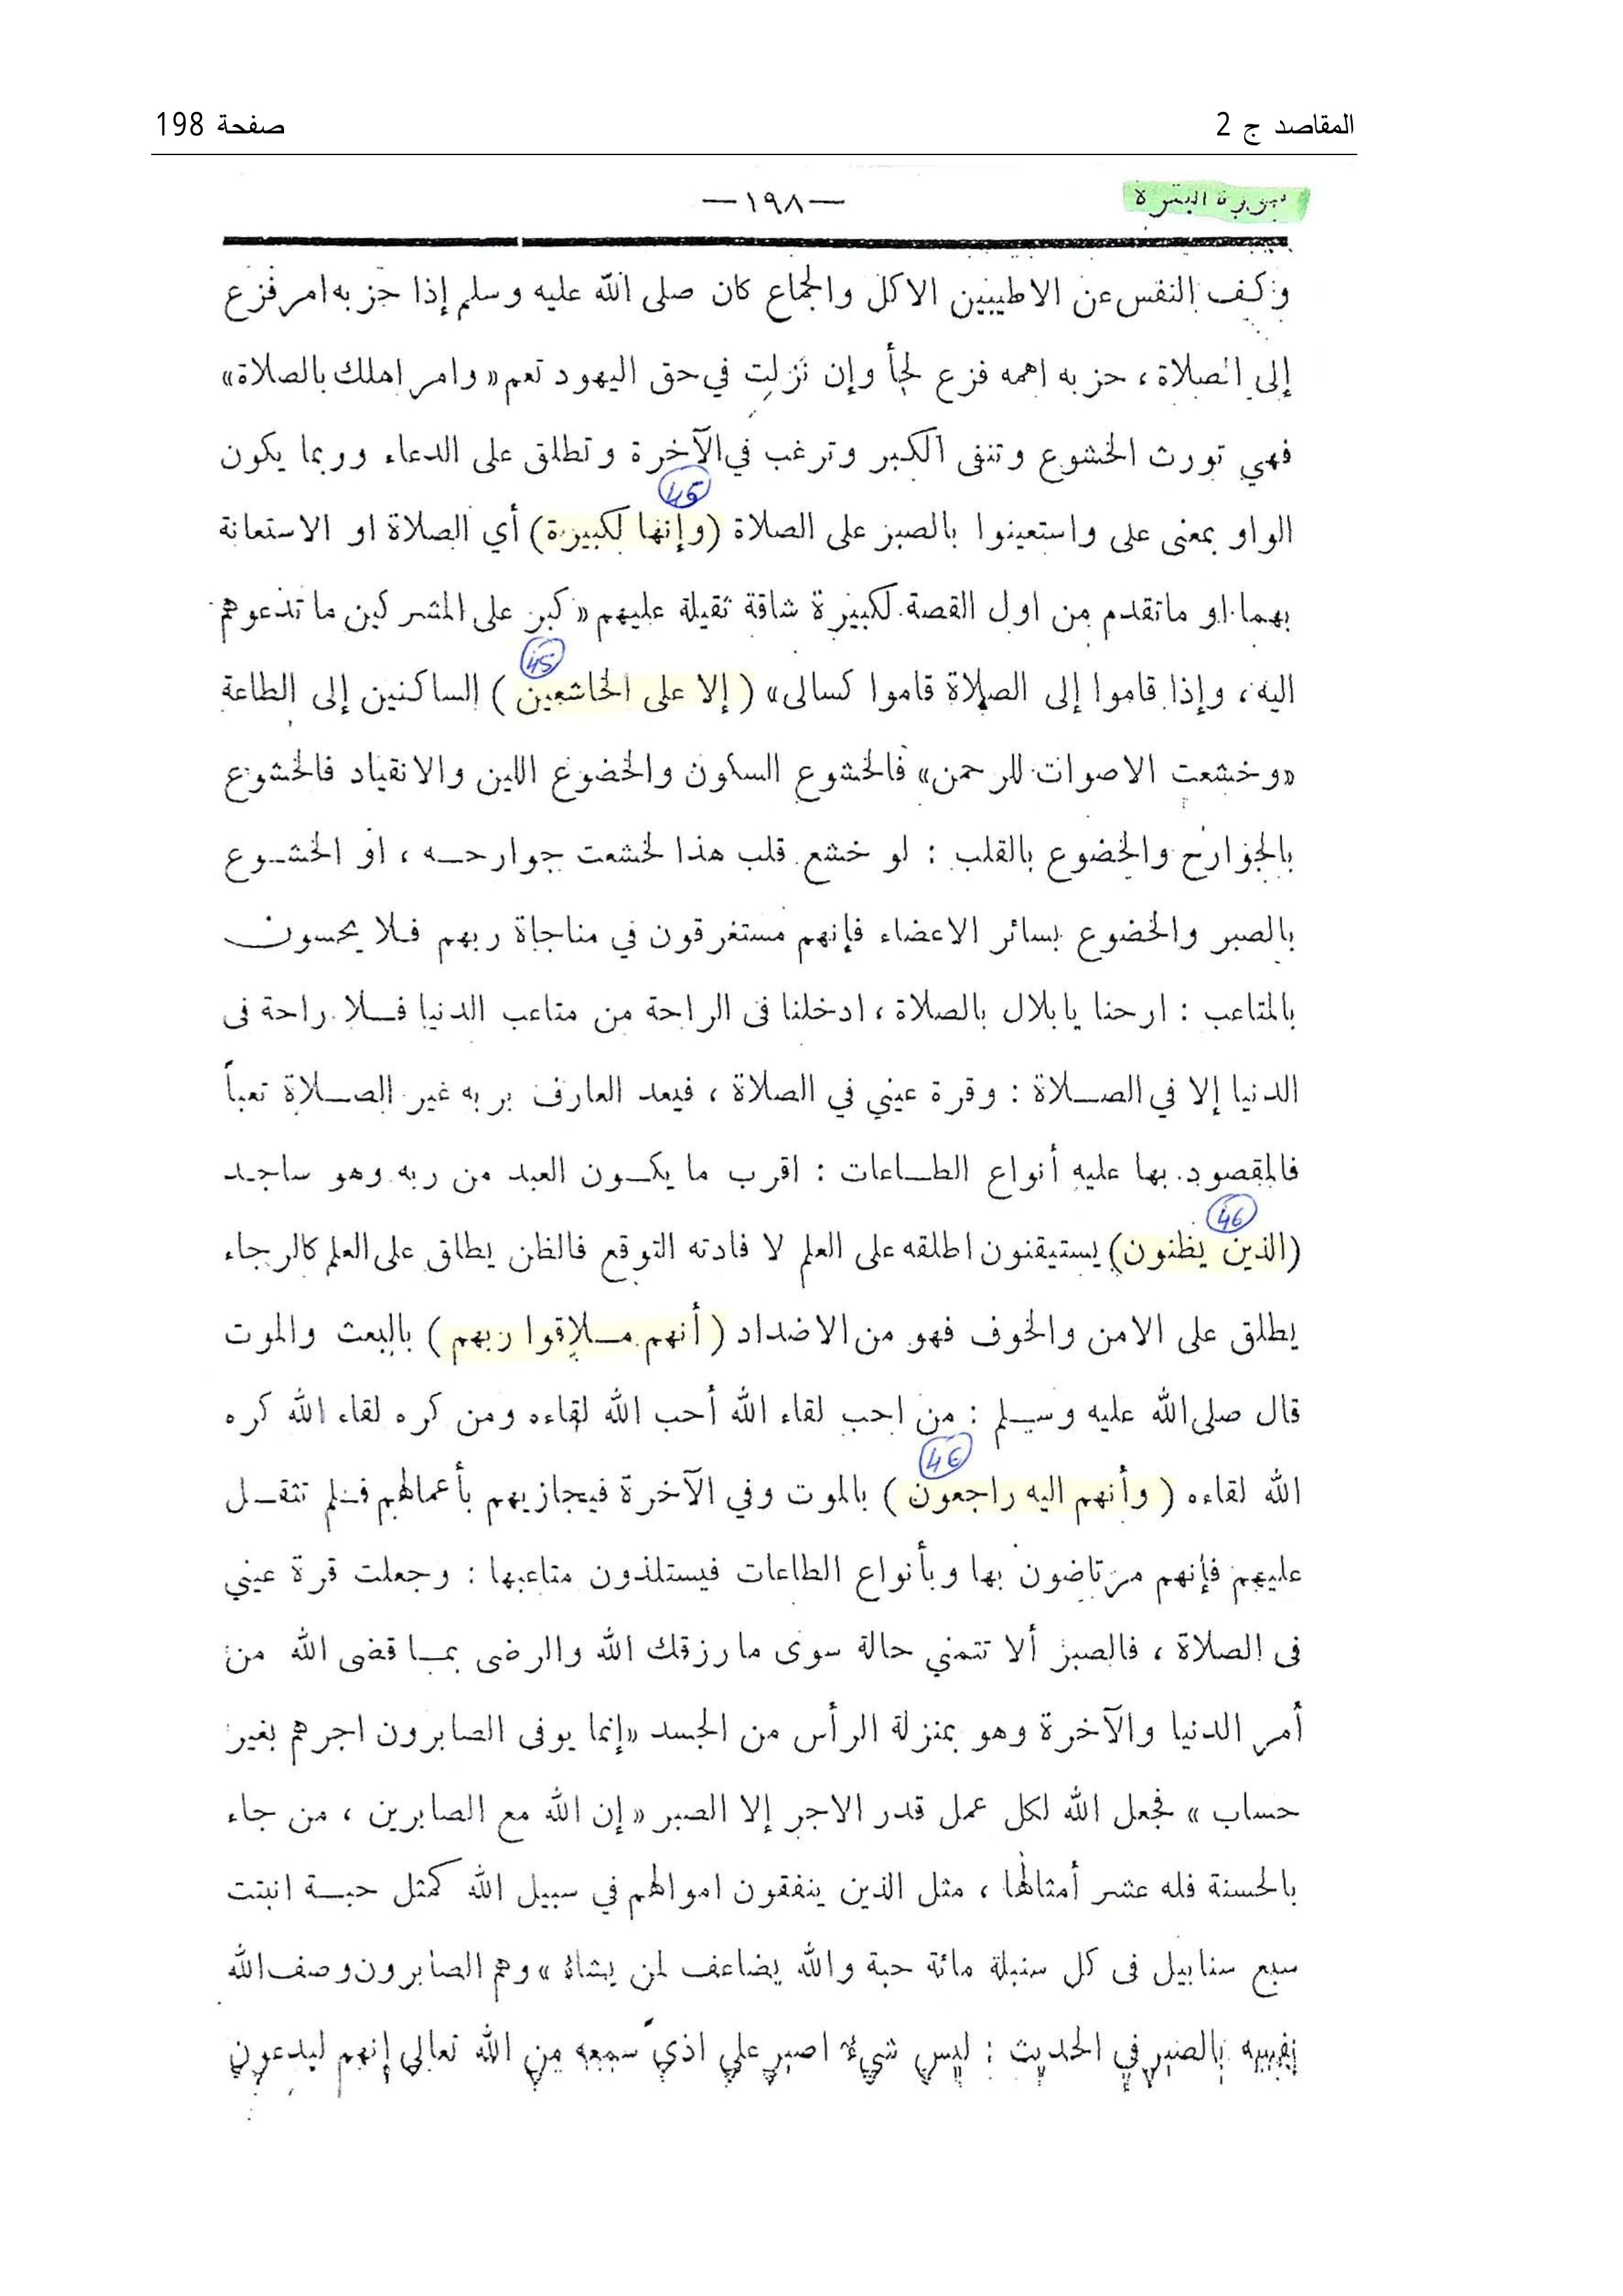 المقاصد ج 2
صفحة 198
سورة البقرة
—١٩٨—
وكف النفس عن الاطيبين الاكل والجماع كان صلى الله عليه وسلم إذا حزبه امر فزع
إلى الصلاة ، حزبه اهمه فزع لجأ وإن نزلت في حق اليهود تعم « وامر اهلك بالصلاة»
فهي تورث الخشوع وتنفى الكبر وترغب في الآخرة وتطلق على الدعاء وربما يكون
45
الواو بمعنى على واستعينوا بالصبر على الصلاة (وإنها لكبيرة) أي الصلاة او الاستعانة
بهما او ماتقدم من اول القصة لكبيرة شاقة ثقيلة عليهم « كبر على المشركين ما تدعوهم
45
اليه ، وإذا قاموا إلى الصلاة قاموا كسالى » ( إلا على الخاشعين ) الساكنين إلى الطاعة
«وخشعت الاصوات للرحمن» فالخشوع السكون والخضوع اللين والانقياد فالخشوع
بالجوارح والخضوع بالقلب : لو خشع قلب هذا لخشعت جوارحه ، او الخشوع
بالصبر والخضوع بسائر الاعضاء فإنهم مستغرقون في مناجاة ربهم فلا يحسون
بالمتاعب : ارحنا يا بلال بالصلاة ، ادخلنا فى الراحة من متاعب الدنيا فلا راحة فى
الدنيا إلا في الصلاة : وقرة عيني في الصلاة ، فيعد العارف بربه غير الصلاة تعباً
فالمقصود بها عليه أنواع الطاعات : اقرب ما يكون العبد من ربه وهو ساجد
46
(الذين يظنون) يستيقنون اطلقه على العلم لا فادته التوقع فالظن يطلق على العلم كالرجاء
يطلق على الامن والخوف فهو من الاضداد ( أنهم ملاقوا ربهم ) بالبعث والموت
قال صلى الله عليه وسلم : من احب لقاء الله أحب الله لقاءه ومن كره لقاء الله كره
46
الله لقاءه ( وأنهم اليه راجعون ) بالموت وفي الآخرة فيجازيهم بأعمالهم فلم تثقل
عليهم فإنهم مرتاضون بها وبأنواع الطاعات فيستلذون متاعبها : وجعلت قرة عيني
فى الصلاة ، فالصبر ألا تتمني حالة سوى ما رزقك الله والرضى بما قضى الله من
أمر الدنيا والآخرة وهو بمنزلة الرأس من الجسد «إنما يوفى الصابرون اجرهم بغير
حساب » فجعل الله لكل عمل قدر الاجر إلا الصبر « إن الله مع الصابرين ، من جاء
بالحسنة فله عشر أمثالها ، مثل الذين ينفقون اموالهم في سبيل الله كمثل حبة انبتت
سبع سنابيل فى كل سنبلة مائة حبة والله يضاعف لمن يشاء » وهم الصابرون وصف الله
نفسه بالصبر في الحديث : ليس شيء اصبر علي اذي سمعه من الله تعالي إنهم ليدعون